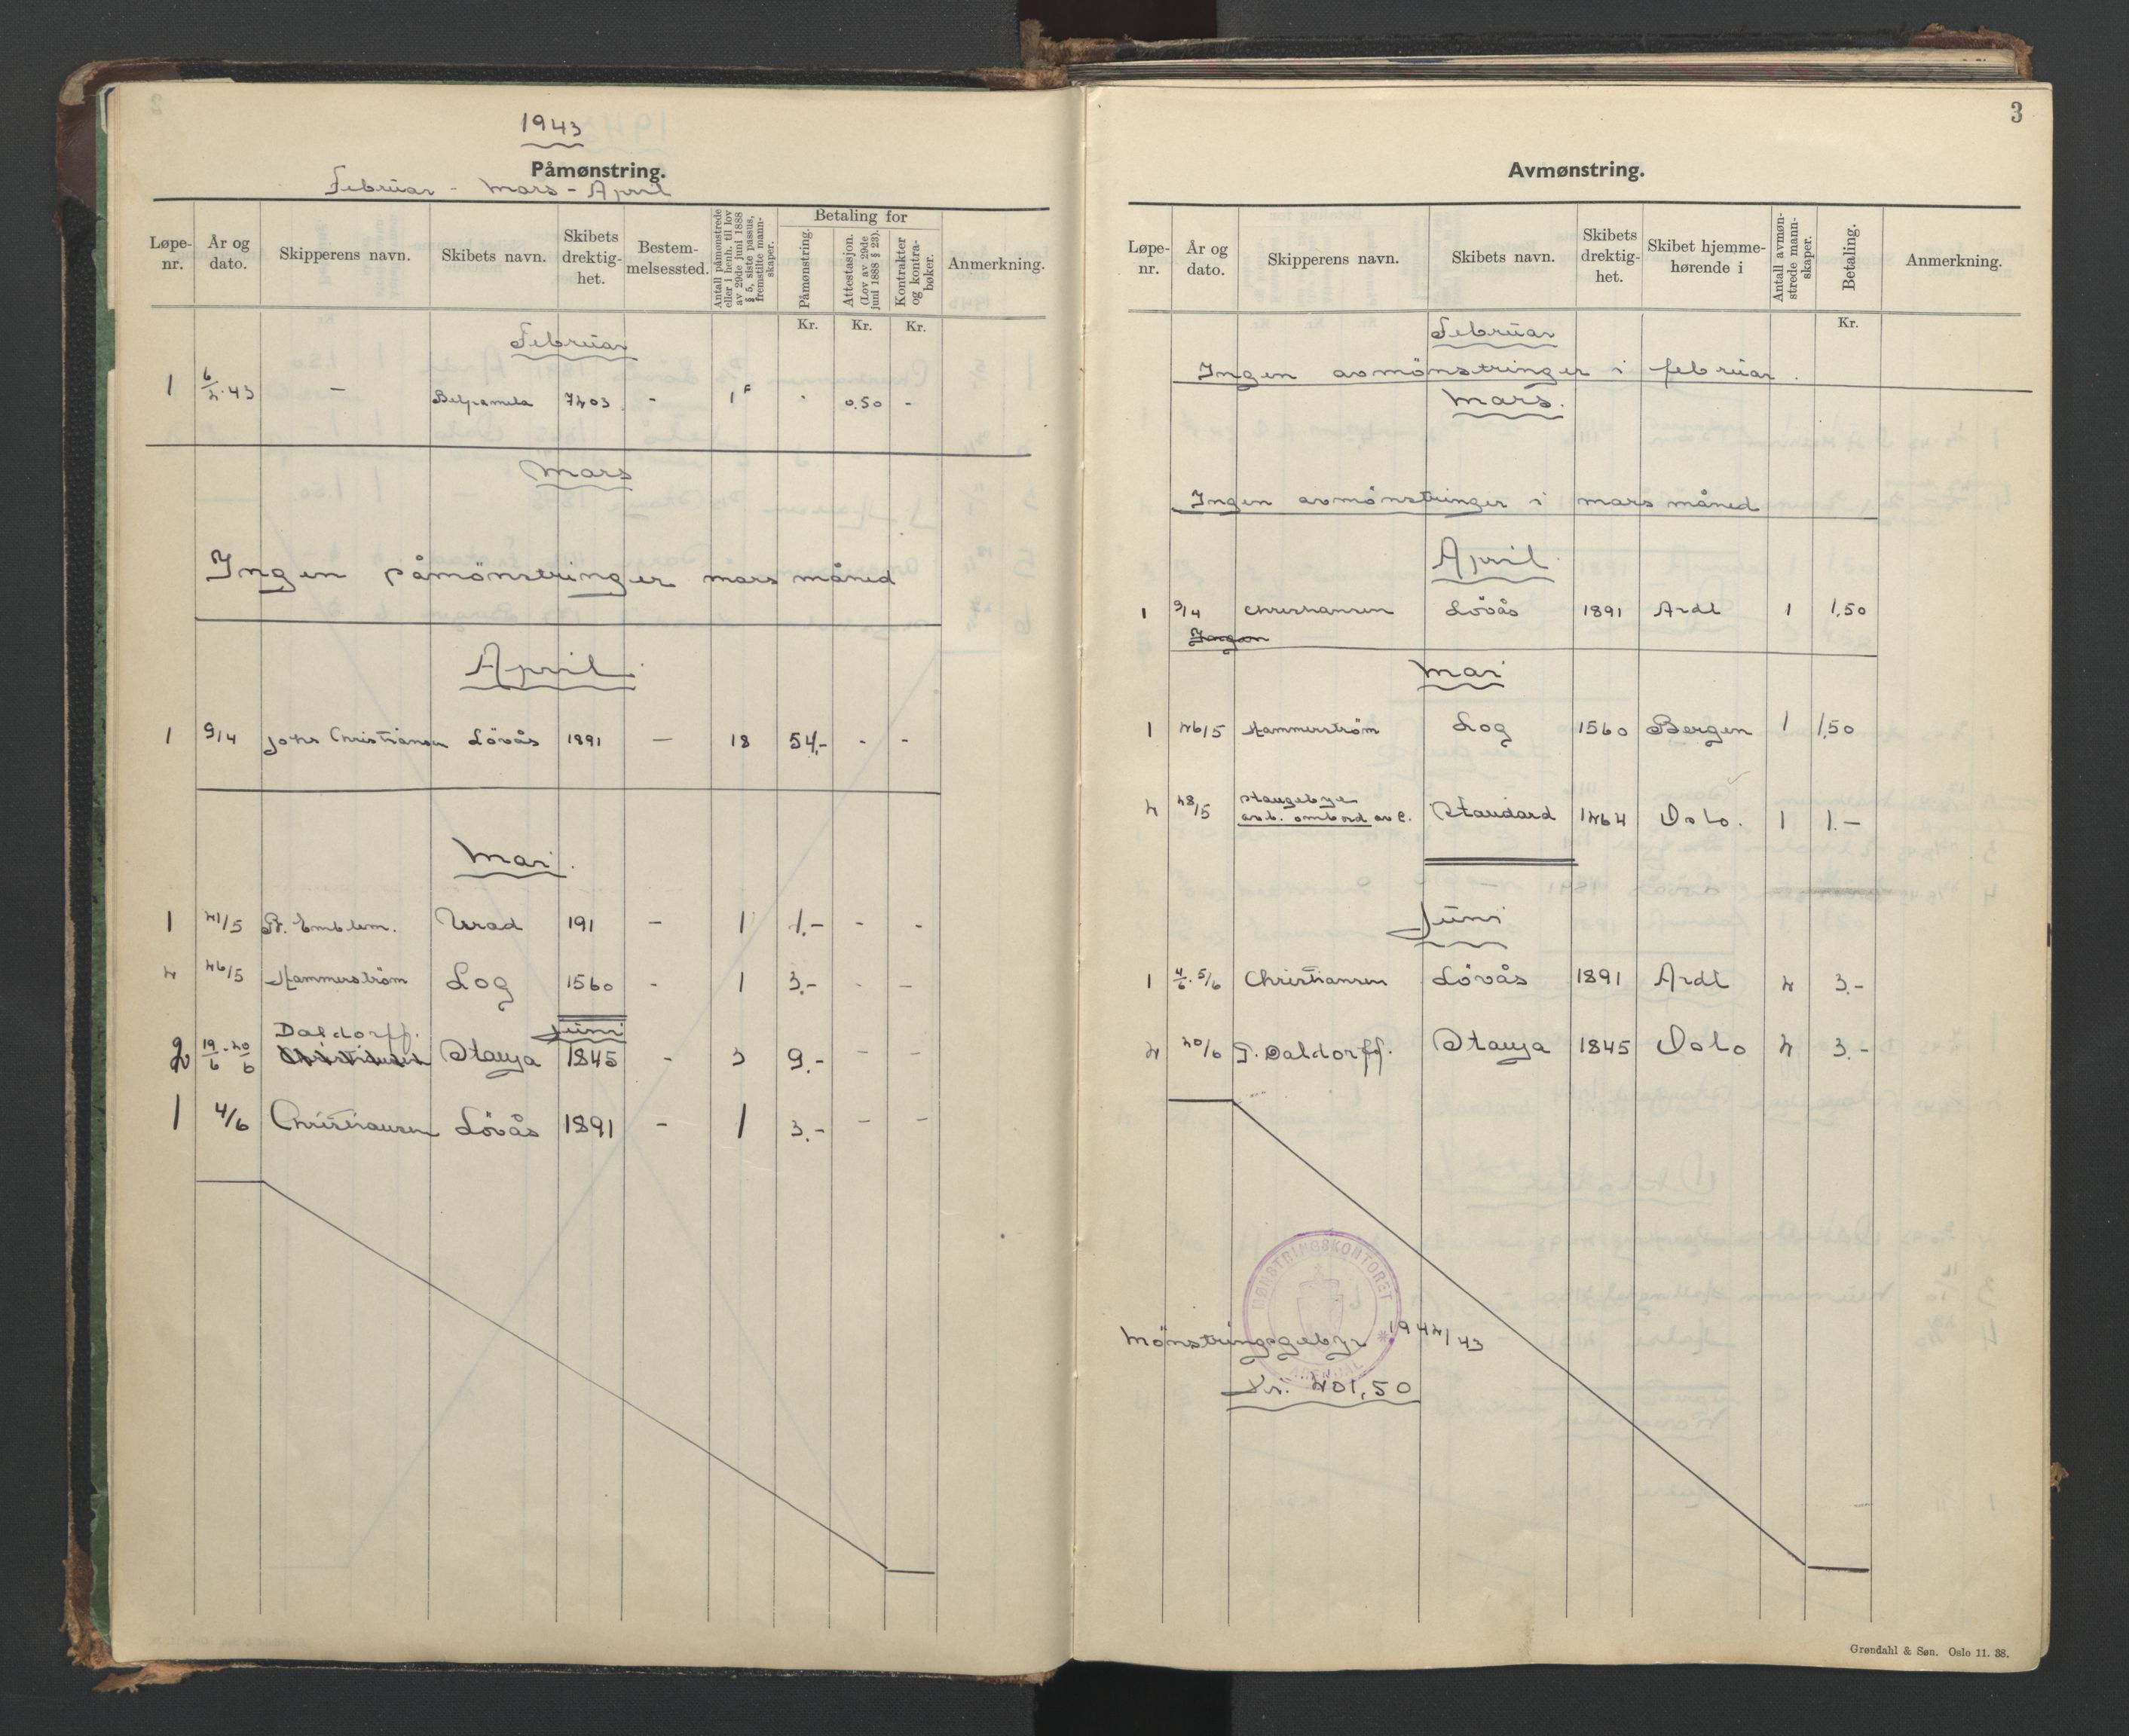 1943
Påmønstring.
Februar - Mars - April
Løpe-nr. År og dato. Skipperens navn. Skibets navn. Skibets drektig-het. Bestem-melsessted. Antall påmønstrede eller i henh. til lov av 29de juni 1888 § 5, siste passus, fremstilte mann-skaper. Betaling for Påmønstring. Attestasjon. (Lov av 29de juni 1888 § 23). Kontrakter og kontra-bøker. Anmerkning.
Kr. Kr. Kr.
Februar
1 6/2.43 — Belpamela 7203 - 1 F . 0.50 -
Mars
Ingen påmönstringer mars måned
April
1 9/4 Johs Christiansen Lövås 1891 — 18 54,- - -
Mai.
1 21/5 P. Emblem. Urad 191 — 1 1.- - -
2 26/5 Hammerström Log 1560 - 1 3.- - —
Juni
Daldorff.
2 19/6 - 20/6 Christiansen Stanja 1845 - 3 9.- - -
1 4/6 Christiansen Lövås 1891 - 1 3.- - -
3
Avmønstring.
Løpe-nr. År og dato. Skipperens navn. Skibets navn. Skibets drektig-het. Skibet hjemme-hørende i Antall avmøn-strede mann-skaper. Betaling. Anmerkning.
Kr.
Februar
Ingen avmönstringer i februar.
Mars.
Ingen avmönstringer i mars måned
April
1 9/4 Christiansen Lövås 1891 Ardl 1 1,50
Ingen
Mai
1 26/5 Hammerström Log 1560 Bergen 1 1,50
2 28/5 Stangebye Standard 1264 Oslo. 1 1.—
ombord av
Juni
1 4/6. 5/6 Christiansen Lövås 1891 Ardl 2 3.-
2 20/6 Daldorff. Stanja 1845 Oslo 2 3.-
MØNSTRINGSKONTORET
ARENDAL
Mönstringsgebyr 1942/43
Kr. 201,50
Grøndahl & Søn. Oslo 11. 38.